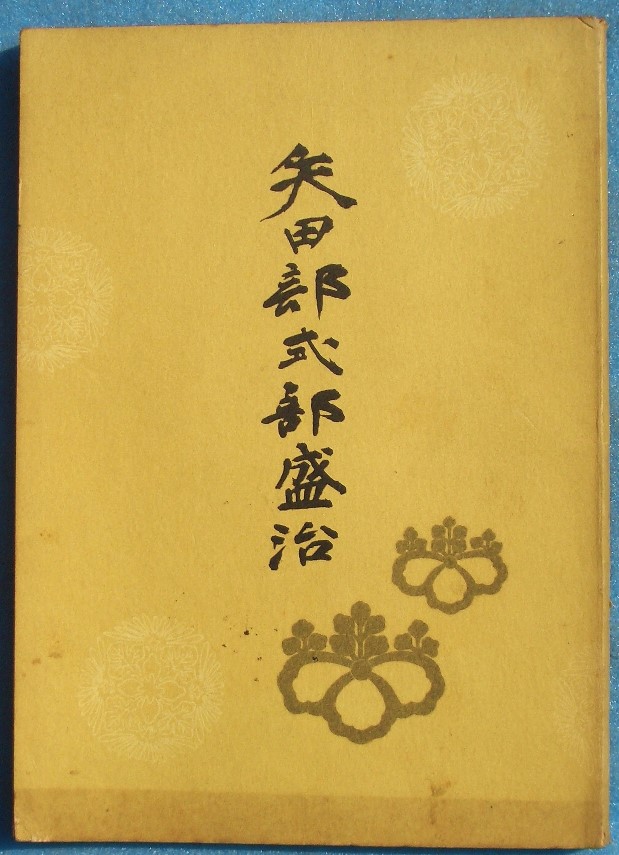 矢田部式部盛治